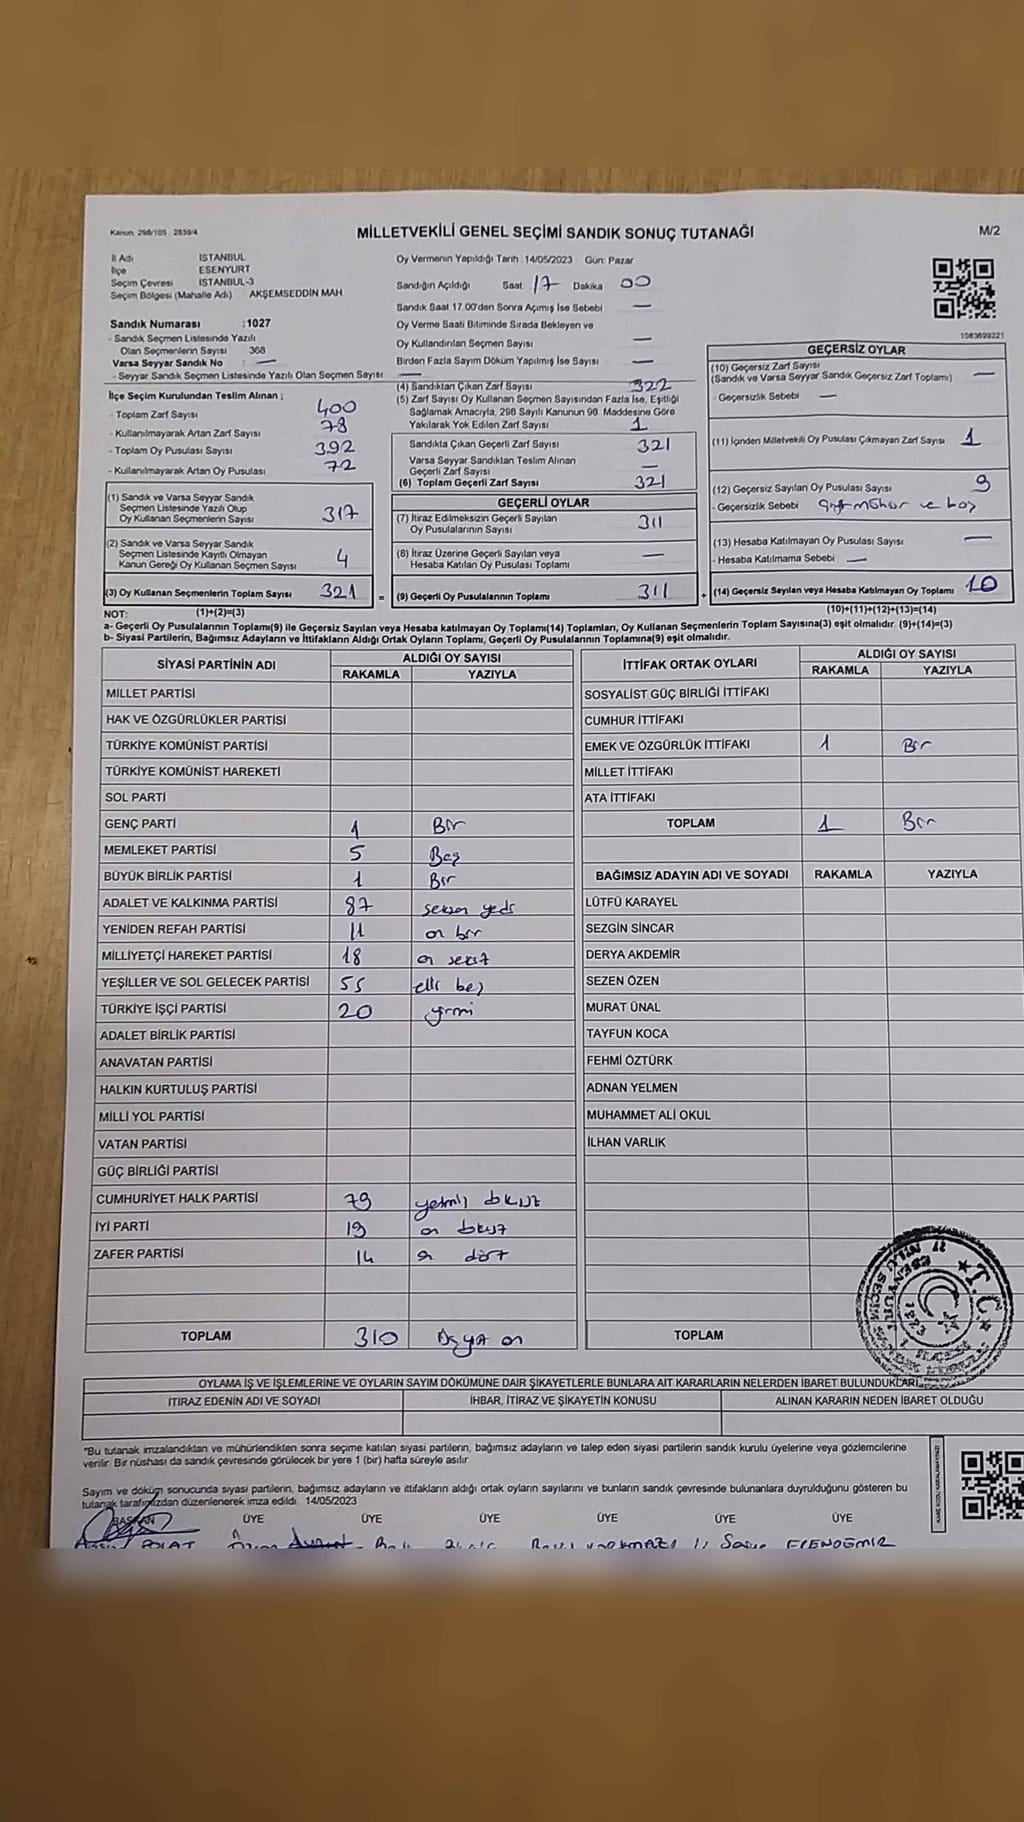 Kanun: 298/105 2839/4
MİLLETVEKİLİ GENEL SEÇİMİ SANDIK SONUÇ TUTANAĞI
M/2
İl Adı İSTANBUL
İlçe ESENYURT
Seçim Çevresi İSTANBUL-3
Seçim Bölgesi (Mahalle Adı) AKŞEMSEDDİN MAH
Sandık Numarası :1027
- Sandık Seçmen Listesinde Yazılı
Olan Seçmenlerin Sayısı 368
Varsa Seyyar Sandık No : —
- Seyyar Sandık Seçmen Listesinde Yazılı Olan Seçmen Sayısı : —
İlçe Seçim Kurulundan Teslim Alınan ;
- Toplam Zarf Sayısı 400
- Kullanılmayarak Artan Zarf Sayısı 78
- Toplam Oy Pusulası Sayısı 392
- Kullanılmayarak Artan Oy Pusulası 72
(1) Sandık ve Varsa Seyyar Sandık
Seçmen Listesinde Yazılı Olup
Oy Kullanan Seçmenlerin Sayısı 317
(2) Sandık ve Varsa Seyyar Sandık
Seçmen Listesinde Kayıtlı Olmayan
Kanun Gereği Oy Kullanan Seçmen Sayısı 4
(3) Oy Kullanan Seçmenlerin Toplam Sayısı 321 =
Oy Vermenin Yapıldığı Tarih :14/05/2023 Gün: Pazar
Sandığın Açıldığı Saat 17 Dakika 00
Sandık Saat 17.00'den Sonra Açımış İse Sebebi —
Oy Verme Saati Bitiminde Sırada Bekleyen ve
Oy Kullandırılan Seçmen Sayısı —
Birden Fazla Sayım Döküm Yapılmış İse Sayısı —
(4) Sandıktan Çıkan Zarf Sayısı 322
(5) Zarf Sayısı Oy Kullanan Seçmen Sayısından Fazla İse, Eşitliği
Sağlamak Amacıyla, 298 Sayılı Kanunun 98. Maddesine Göre
Yakılarak Yok Edilen Zarf Sayısı 1
Sandıkta Çıkan Geçerli Zarf Sayısı 321
Varsa Seyyar Sandıktan Teslim Alınan
Geçerli Zarf Sayısı —
(6) Toplam Geçerli Zarf Sayısı 321
GEÇERLİ OYLAR
(7) İtiraz Edilmeksizin Geçerli Sayılan
Oy Pusulalarının Sayısı 311
(8) İtiraz Üzerine Geçerli Sayılan veya
Hesaba Katılan Oy Pusulası Toplamı —
(9) Geçerli Oy Pusulalarının Toplamı 311 +
1083699221
GEÇERSİZ OYLAR
(10) Geçersiz Zarf Sayısı
(Sandık ve Varsa Seyyar Sandık Geçersiz Zarf Toplamı) —
- Geçersizlik Sebebi —
(11) İçinden Milletvekili Oy Pusulası Çıkmayan Zarf Sayısı 1
(12) Geçersiz Sayılan Oy Pusulası Sayısı 9
- Geçersizlik Sebebi Çift mühür ve boş
(13) Hesaba Katılmayan Oy Pusulası Sayısı —
- Hesaba Katılmama Sebebi —
(14) Geçersiz Sayılan veya Hesaba Katılmayan Oy Toplamı 10
NOT: (1)+(2)=(3) (10)+(11)+(12)+(13)=(14)
a- Geçerli Oy Pusulalarının Toplamı(9) ile Geçersiz Sayılan veya Hesaba katılmayan Oy Toplamı(14) Toplamları, Oy Kullanan Seçmenlerin Toplam Sayısına(3) eşit olmalıdır. (9)+(14)=(3)
b- Siyasi Partilerin, Bağımsız Adayların ve İttifakların Aldığı Ortak Oyların Toplamı, Geçerli Oy Pusulalarının Toplamına(9) eşit olmalıdır.
SİYASİ PARTİNİN ADI ALDIĞI OY SAYISI
RAKAMLA YAZIYLA
MİLLET PARTİSİ
HAK VE ÖZGÜRLÜKLER PARTİSİ
TÜRKİYE KOMÜNİST PARTİSİ
TÜRKİYE KOMÜNİST HAREKETİ
SOL PARTİ
GENÇ PARTİ 1 Bir
MEMLEKET PARTİSİ 5 Beş
BÜYÜK BİRLİK PARTİSİ 1 Bir
ADALET VE KALKINMA PARTİSİ 87 seksen yedi
YENİDEN REFAH PARTİSİ 11 on bir
MİLLİYETÇİ HAREKET PARTİSİ 18 on sekiz
YEŞİLLER VE SOL GELECEK PARTİSİ 55 elli beş
TÜRKİYE İŞÇİ PARTİSİ 20 yirmi
ADALET BİRLİK PARTİSİ
ANAVATAN PARTİSİ
HALKIN KURTULUŞ PARTİSİ
MİLLİ YOL PARTİSİ
VATAN PARTİSİ
GÜÇ BİRLİĞİ PARTİSİ
CUMHURİYET HALK PARTİSİ 79 yetmiş dokuz
İYİ PARTİ 19 on dokuz
ZAFER PARTİSİ 14 on dört
TOPLAM 310 Üçyüz on
İTTİFAK ORTAK OYLARI ALDIĞI OY SAYISI
RAKAMLA YAZIYLA
SOSYALİST GÜÇ BİRLİĞİ İTTİFAKI
CUMHUR İTTİFAKI
EMEK VE ÖZGÜRLÜK İTTİFAKI 1 Bir
MİLLET İTTİFAKI
ATA İTTİFAKI
TOPLAM 1 Bir
BAĞIMSIZ ADAYIN ADI VE SOYADI RAKAMLA YAZIYLA
LÜTFÜ KARAYEL
SEZGİN SİNCAR
DERYA AKDEMİR
SEZEN ÖZEN
MURAT ÜNAL
TAYFUN KOCA
FEHMİ ÖZTÜRK
ADNAN YELMEN
MUHAMMET ALİ OKUL
İLHAN VARLIK
TOPLAM
T.C.
ESENYURT
OYLAMA İŞ VE İŞLEMLERİNE VE OYLARIN SAYIM DÖKÜMÜNE DAİR ŞİKAYETLERLE BUNLARA AİT KARARLARIN NELERDEN İBARET BULUNDUKLARI
İTİRAZ EDENİN ADI VE SOYADI İHBAR, İTİRAZ VE ŞİKAYETİN KONUSU ALINAN KARARIN NEDEN İBARET OLDUĞU
*Bu tutanak imzalandıktan ve mühürlendikten sonra seçime katılan siyasi partilerin, bağımsız adayların ve talep eden siyasi partilerin sandık kurulu üyelerine veya gözlemcilerine
verilir. Bir nüshası da sandık çevresinde görülecek bir yere 1 (bir) hafta süreyle asılır.
Sayım ve döküm sonucunda siyasi partilerin, bağımsız adayların ve ittifakların aldığı ortak oyların sayılarını ve bunların sandık çevresinde bulunanlara duyrulduğunu gösteren bu
tutanak tarafımızdan düzenlenerek imza edildi. 14/05/2023
BAŞKAN ÜYE ÜYE ÜYE ÜYE ÜYE ÜYE
POLAT
KARE KODU KARALAMAYINIZ!